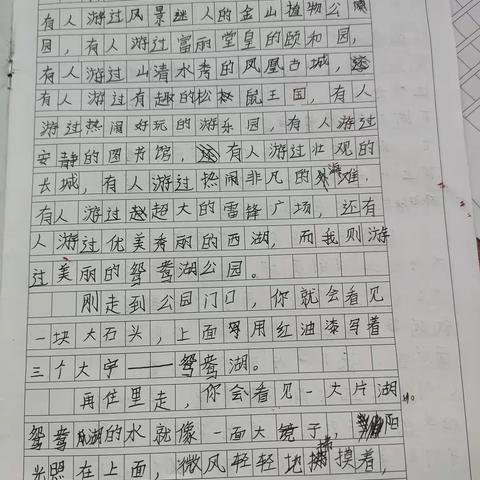 有人游过风景迷人的金山植物公
园，有人游过富丽堂皇的颐和园，
有人游过山清水秀的凤凰古城，
有人游过有趣的松鼠王国，有人
游过热闹好玩的游乐园，有人游过
安静的图书馆，有人游过壮观的
长城，有人游过热闹非凡的滩，
有人游过超大的雷锋广场，还有
人游过优美秀丽的西湖，而我则游
过美丽的鸳鸯湖公园。
刚走到公园门口，你就会看见
一块大石头，上面用红油漆写着
三个大字——鸳鸯湖。
再往里走，你会看见一大片湖
鸳鸯湖的水就像一面大镜子，阳
光照在上面，微风轻轻地摸着，